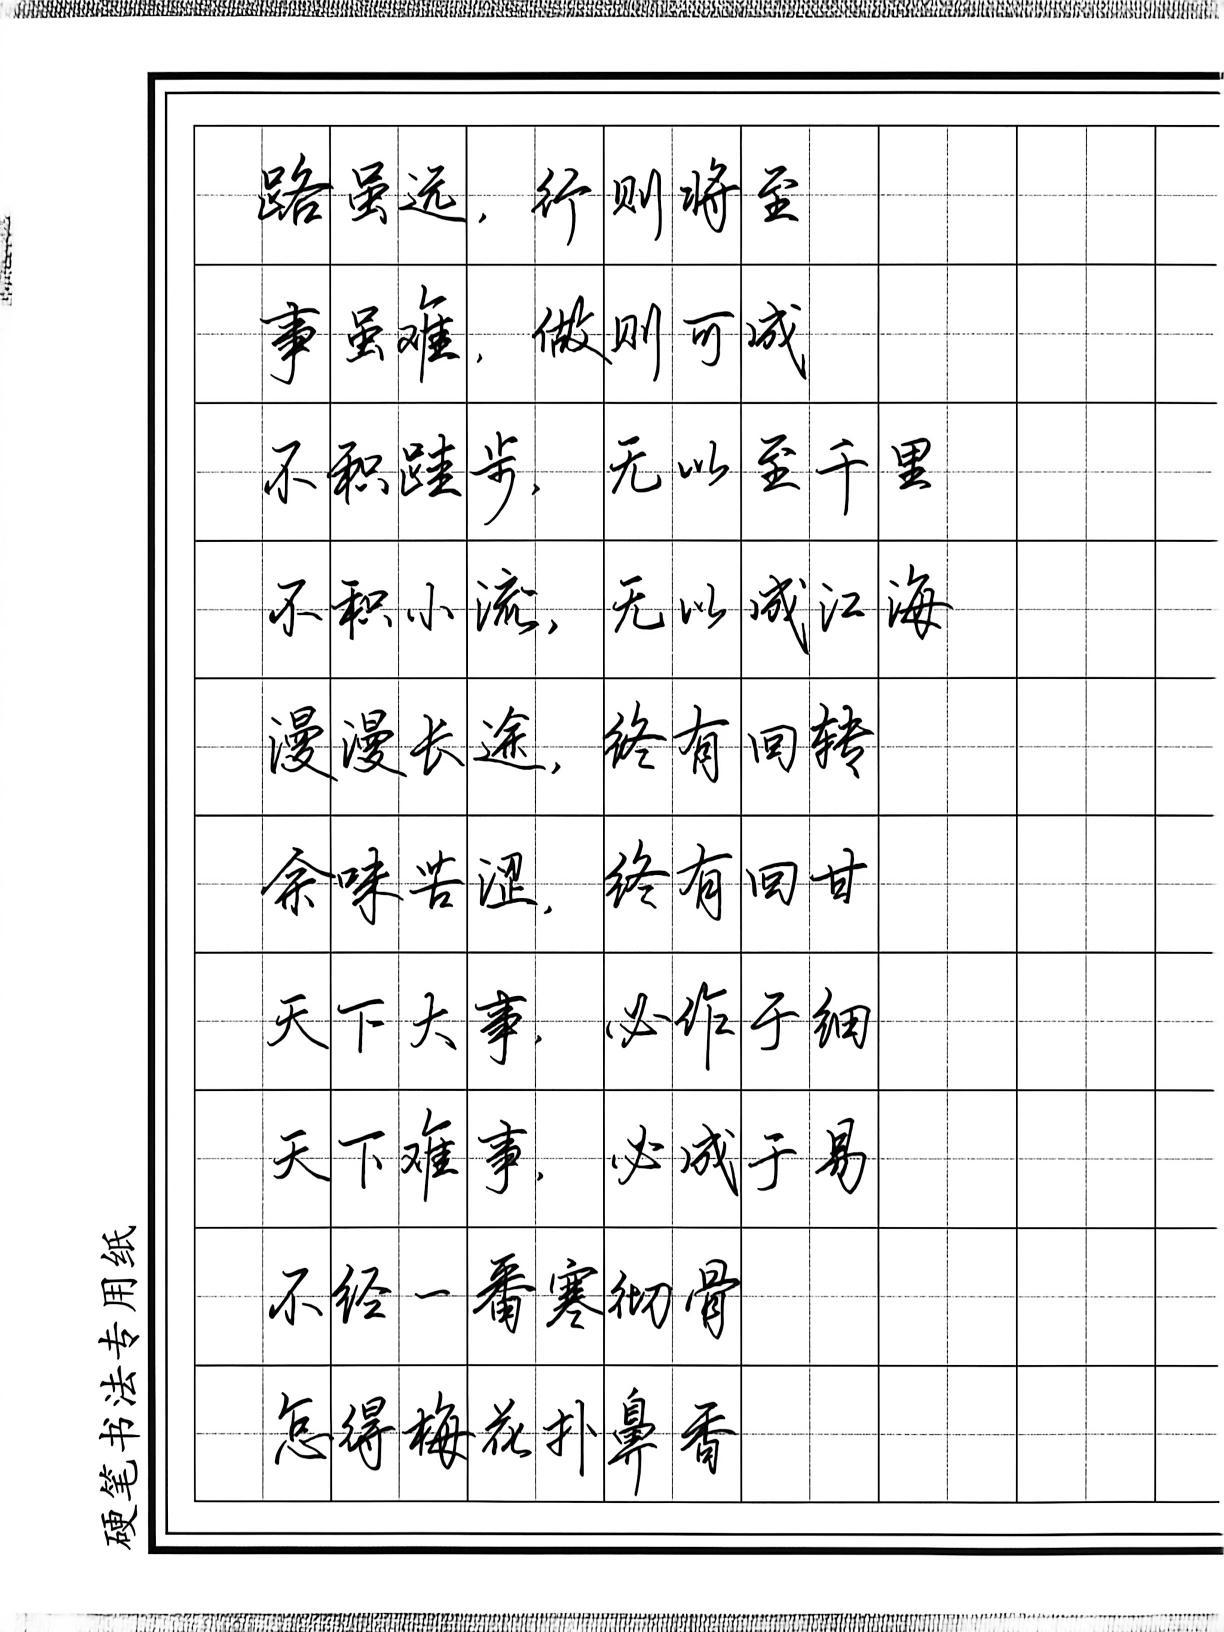 路虽远，行则将至
事虽难，做则可成
不积跬步，无以至千里
不积小流，无以成江海
漫漫长途，终有回转
余味苦涩，终有回甘
天下大事，必作于细
天下难事，必成于易
不经一番寒彻骨
怎得梅花扑鼻香
硬笔书法专用纸